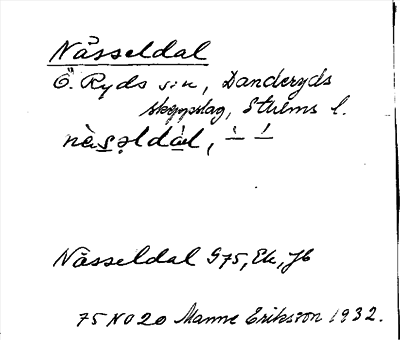 Nässeldal
Ö. Ryds sn, Danderyds
skeppslag, Sthlms l.
nàsəldál, – –
Nässeldal G75, Ek, Jb
75 NO 20 Manne Eriksson 1932.